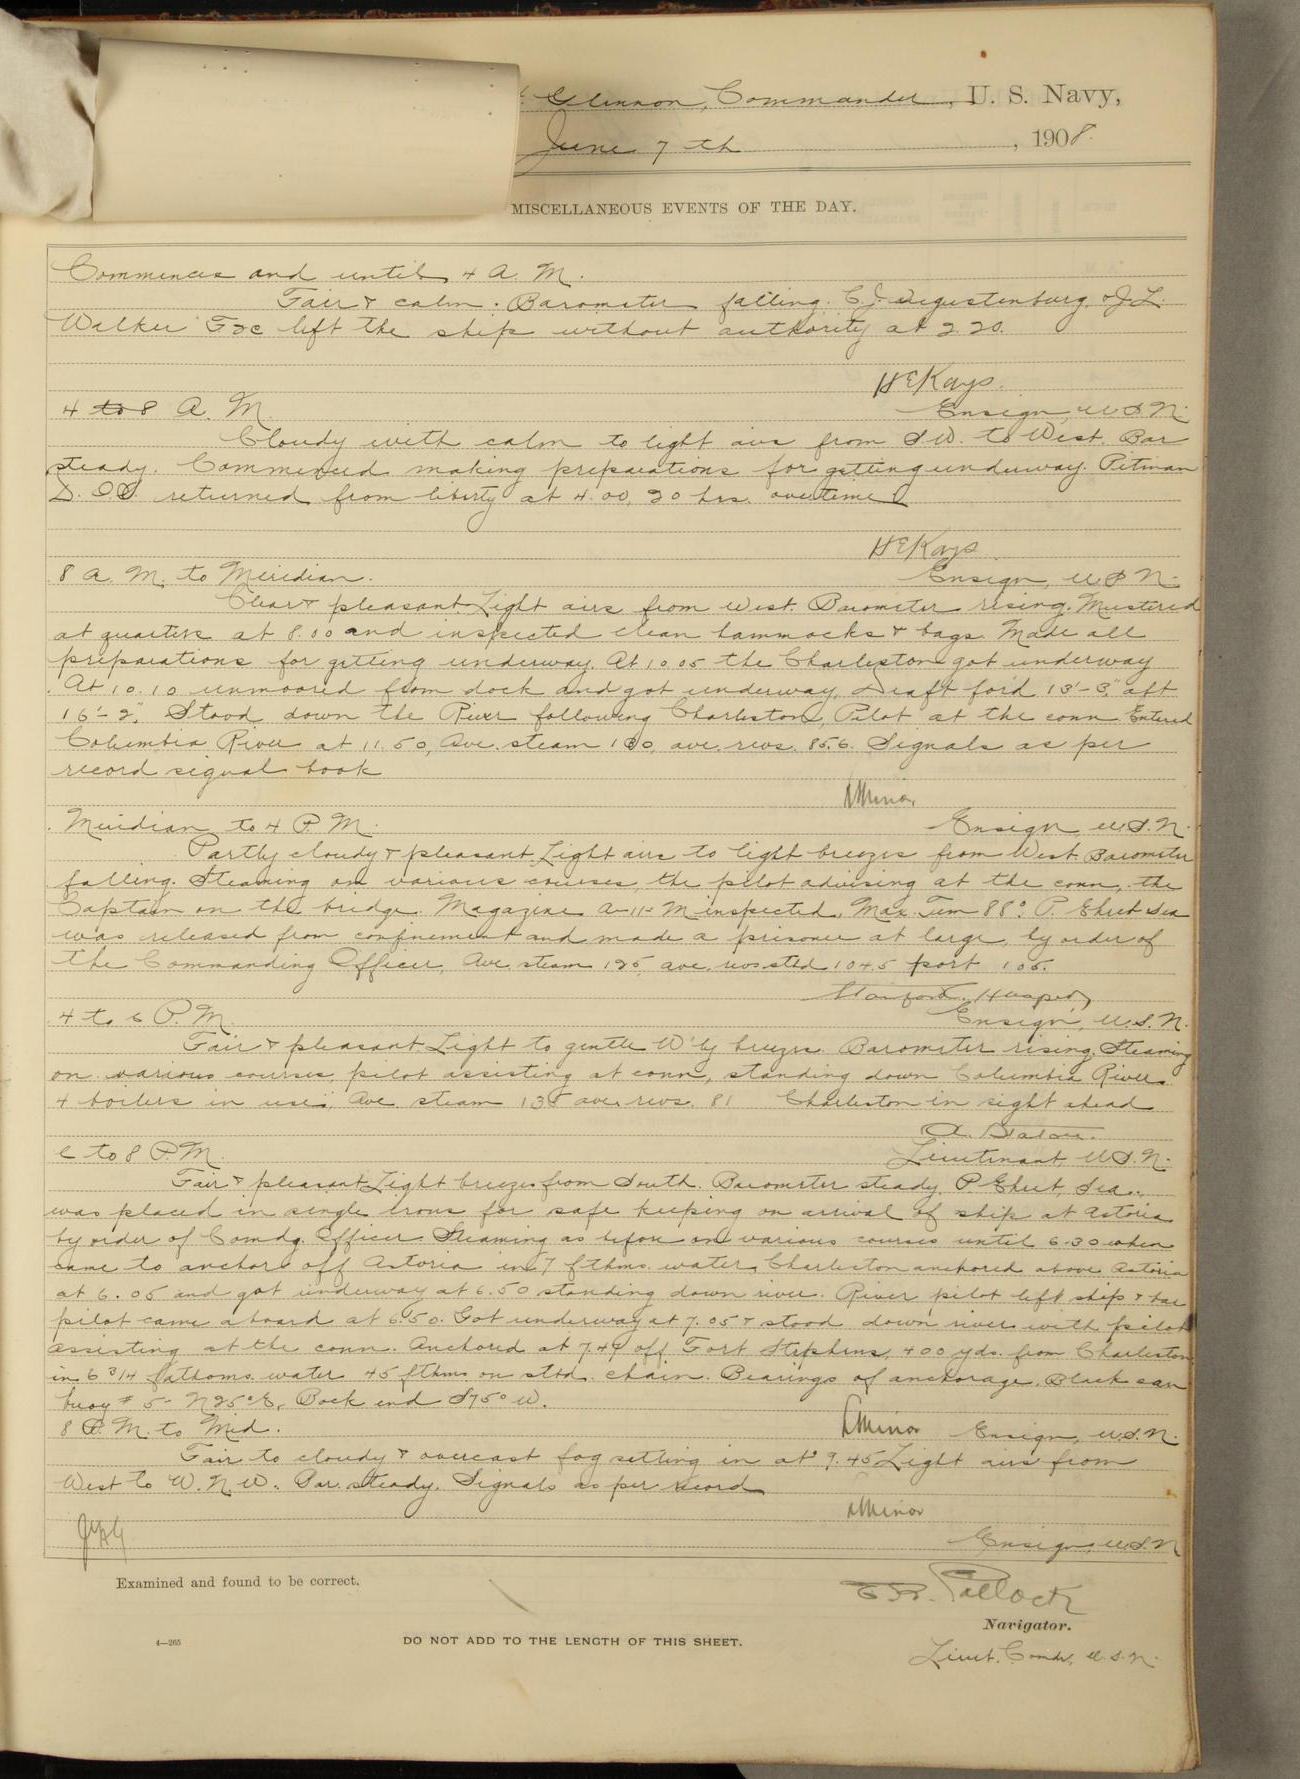 Glennon, Commander, U. S. Navy,
June 7 th, 1908.
MISCELLANEOUS EVENTS OF THE DAY.
Commences and until 4 A. M.
Fair & calm. Barometer falling. C. J. Augustenburg & J. L.
Walker F2c left the ship without authority at 2.20.
H E Kays
Ensign, U S N.
4 to 8 A. M.
Cloudy with calm to light airs from SW. to West. Bar
steady. Commenced making preparations for getting underway. Pitman
D. returned from liberty at 4.00, 20 hrs. overtime
H E Kays
8 A. M. to Meridian.
Ensign, U S N.
Clear & pleasant Light airs from West. Barometer rising. Mustered
at quarters at 8.00 and inspected clean hammocks & bags. Made all
preparations for getting underway. At 10.05 the Charleston got underway
At 10.10 unmoored from dock and got underway. Draft for'd 13'-3," aft
16'-2". Stood down the River following Charleston, Pilot at the conn Entered
Columbia River at 11.50, Ave. steam 100, ave. revs. 85.6. Signals as per
record signal book
Minor
Ensign U.S.N.
Meridian to 4 P. M.
Partly cloudy & pleasant Light airs to light breezes from West. Barometer
falling. Steaming on various courses, the pilot advising at the conn, the
Captain on the bridge. Magazine A-11-M inspected, Max. Tem 88°. P. Ehret Sea
was released from confinement and made a prisoner at large by order of
the Commanding Officer, Ave. steam 125, ave. revs stbd 104.5 port 105.
4 to 6 P. M.
Ensign, U.S.N.
Fair & pleasant Light to gentle W'ly breezes. Barometer rising. Steaming
on various courses, pilot assisting at conn, standing down Columbia River.
4 boilers in use, Ave. steam 135 ave. revs. 81 Charleston in sight ahead
Lieutenant, U S. N.
6 to 8 P. M.
Fair & pleasant Light breezes from South. Barometer steady. P. Ehret, Sea.
was placed in single irons for safe keeping on arrival of ship at Astoria
by order of Comdg. Officer Steaming as before on various courses until 6.30 when
came to anchor off Astoria in 7 fthms. water, Charleston anchored above Astoria
at 6.05 and got underway at 6.50 standing down river. River pilot left ship & bar
pilot came aboard at 6.50. Got underway at 7.05 & stood down river with pilot
assisting at the conn. Anchored at 7.49 off Fort Stephens, 400 yds. from Charleston
in 6 3/4 fathoms water 45 fthms on stbd. chain. Bearings of anchorage, Black can
buoy # 5- N25°E, Dock end S75° W.
Minor Ensign, U.S.N.
8 P. M. to Mid.
Fair to cloudy & overcast fog setting in at 9.45 Light airs from
West to W. N. W. Bar. steady. Signals as per record
Minor
Ensign, U.S.N
Examined and found to be correct.
Pollock
Navigator.
4—265
DO NOT ADD TO THE LENGTH OF THIS SHEET.
Lieut. Comdr. U.S.N.